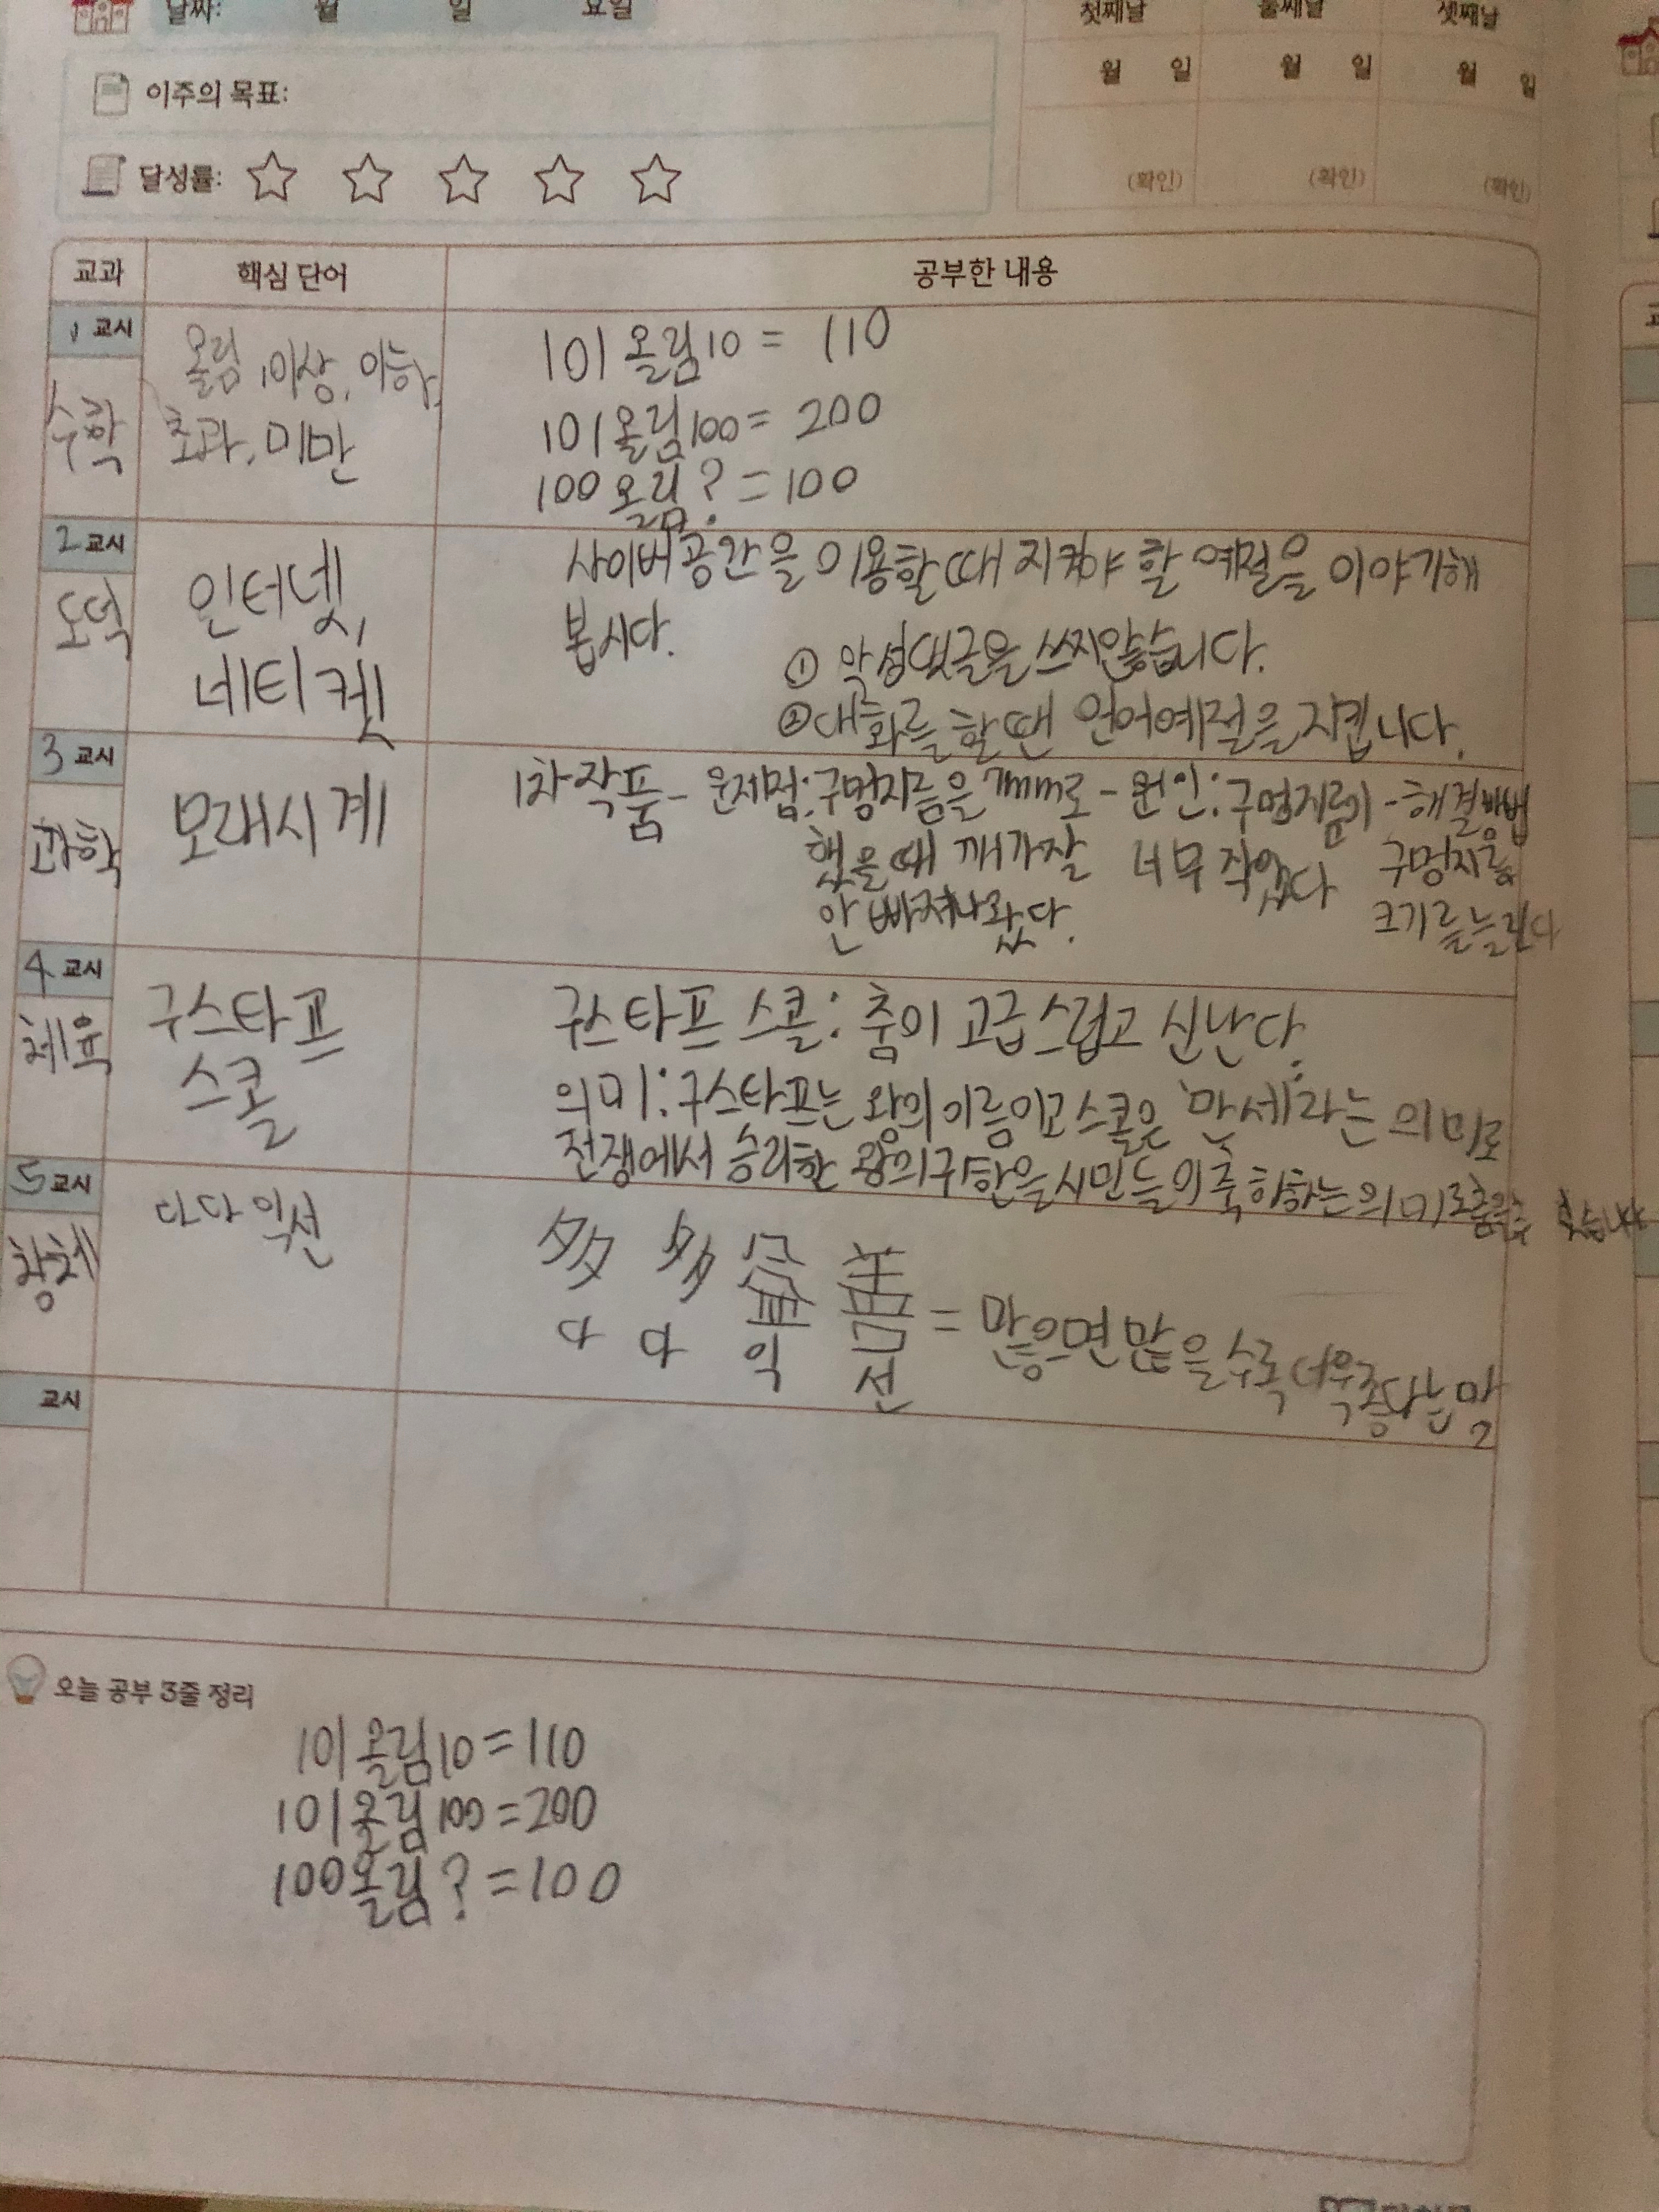 날짜: 월 일 요일
첫째날 둘째날 셋째날
월 일 월 일 월 일
이주의 목표:
달성률:
(확인) (확인) (확인)
교과 핵심 단어 공부한 내용
1 교시
수학
올림, 이상, 이하,
초과, 미만
101 올림 10 = 110
101 올림 100 = 200
100 올림 ? = 100
2 교시
도덕
인터넷,
네티켓
사이버공간을 이용할 때 지켜야 할 예절을 이야기해
봅시다.
① 악성댓글을 쓰지않습니다.
② 대화를 할 땐 언어예절을 지킵니다.
3 교시
과학
모래시계
1차작품 - 문제점: 구멍지름을 mm로 - 원인: 구멍지름이 - 해결방법
했을 때 깨가 잘 너무 작았다 구멍지름
안 빠져나왔다. 크기를 늘린다
4 교시
체육
구스타프
스콜
구스타프 스콜: 춤이 고급스럽고 신난다.
의미: 구스타프는 왕의 이름이고 스콜은 '만세'라는 의미로
전쟁에서 승리한 왕의 귀환을 시민들이 축하하는 의미로
5 교시
창체
다다익선
多 多 益 善
다 다 익 선
= 많으면 많을수록 더욱 좋다는 말
교시
오늘 공부 3줄 정리
101 올림 10 = 110
101 올림 100 = 200
100 올림 ? = 100